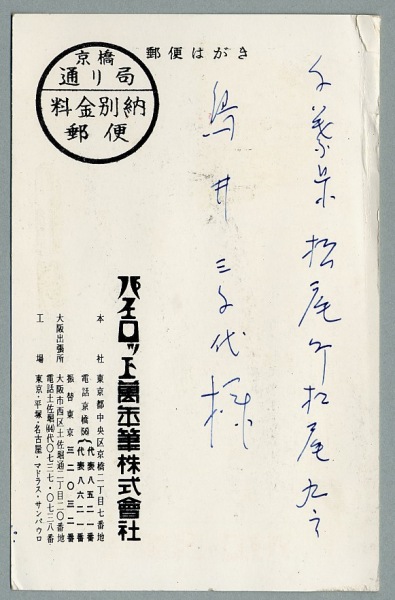 郵便はがき
京橋
通り局
料金別納
郵便
千葉県松尾町松尾九三
鳥井三千代様
パイロット萬年筆株式會社
本社 東京都中央区京橋二丁目七番地
電話京橋(56)(代表八五二一番
代表八六二一番
振替東京三二〇三二番
大阪出張所 大阪市西区土佐堀通二丁目二〇番地
電話土佐堀(44)代〇七三七・〇七三八番
工場 東京・平塚・名古屋・マドラス・サンパウロ